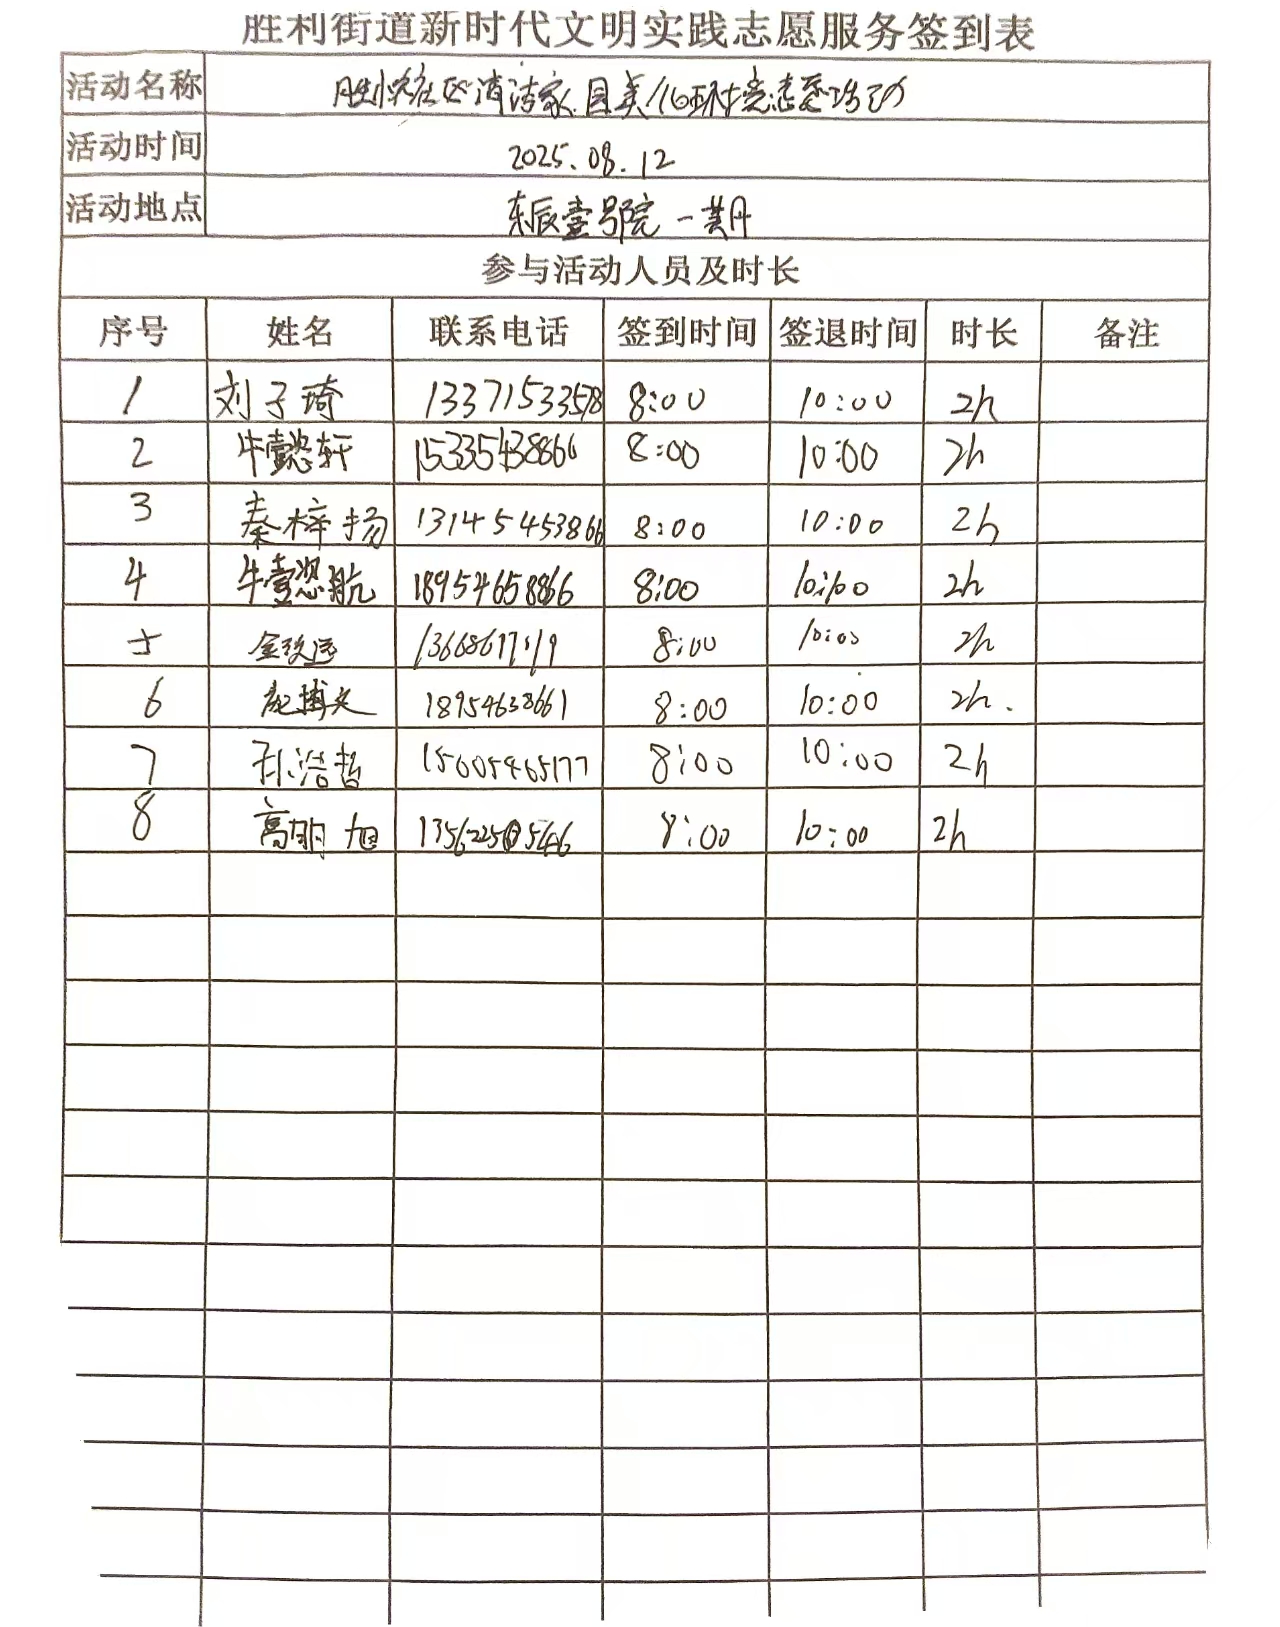 胜利街道新时代文明实践志愿服务签到表
活动名称 胜悦社区清洁家园美化环境志愿活动
活动时间 2025.08.12
活动地点 东辰壹号院一期
参与活动人员及时长
序号 姓名 联系电话 签到时间 签退时间 时长 备注
1 刘子琦 13371533578 8:00 10:00 2h
2 牛懿轩 15335438866 8:00 10:00 2h
3 秦梓扬 13145453866 8:00 10:00 2h
4 牛懿航 18954658866 8:00 10:00 2h
5 8:00 10:00 2h
6 庞博文 18954638661 8:00 10:00 2h.
7 孙浩哲 15605465177 8:00 10:00 2h
8 高明旭 8:00 10:00 2h